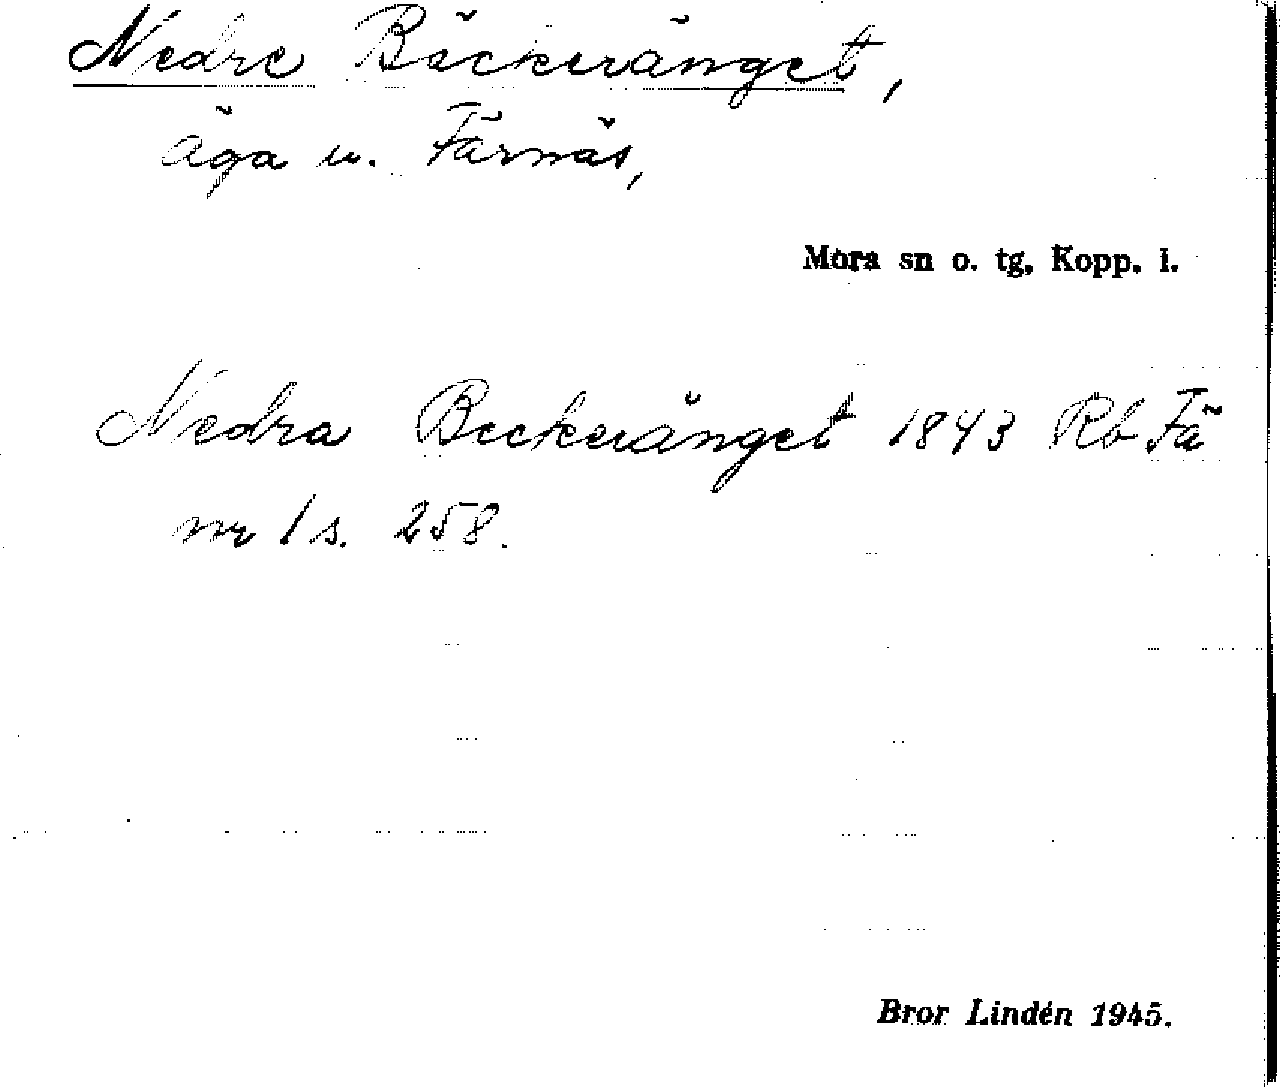 Nedre Bäckeränget,
äga u. Färnäs,
Mora sn o. tg, Kopp. l.
Nedra Beckeränget 1843 Rb Fä
nr 1 s. 258.
Bror Lindén 1945.